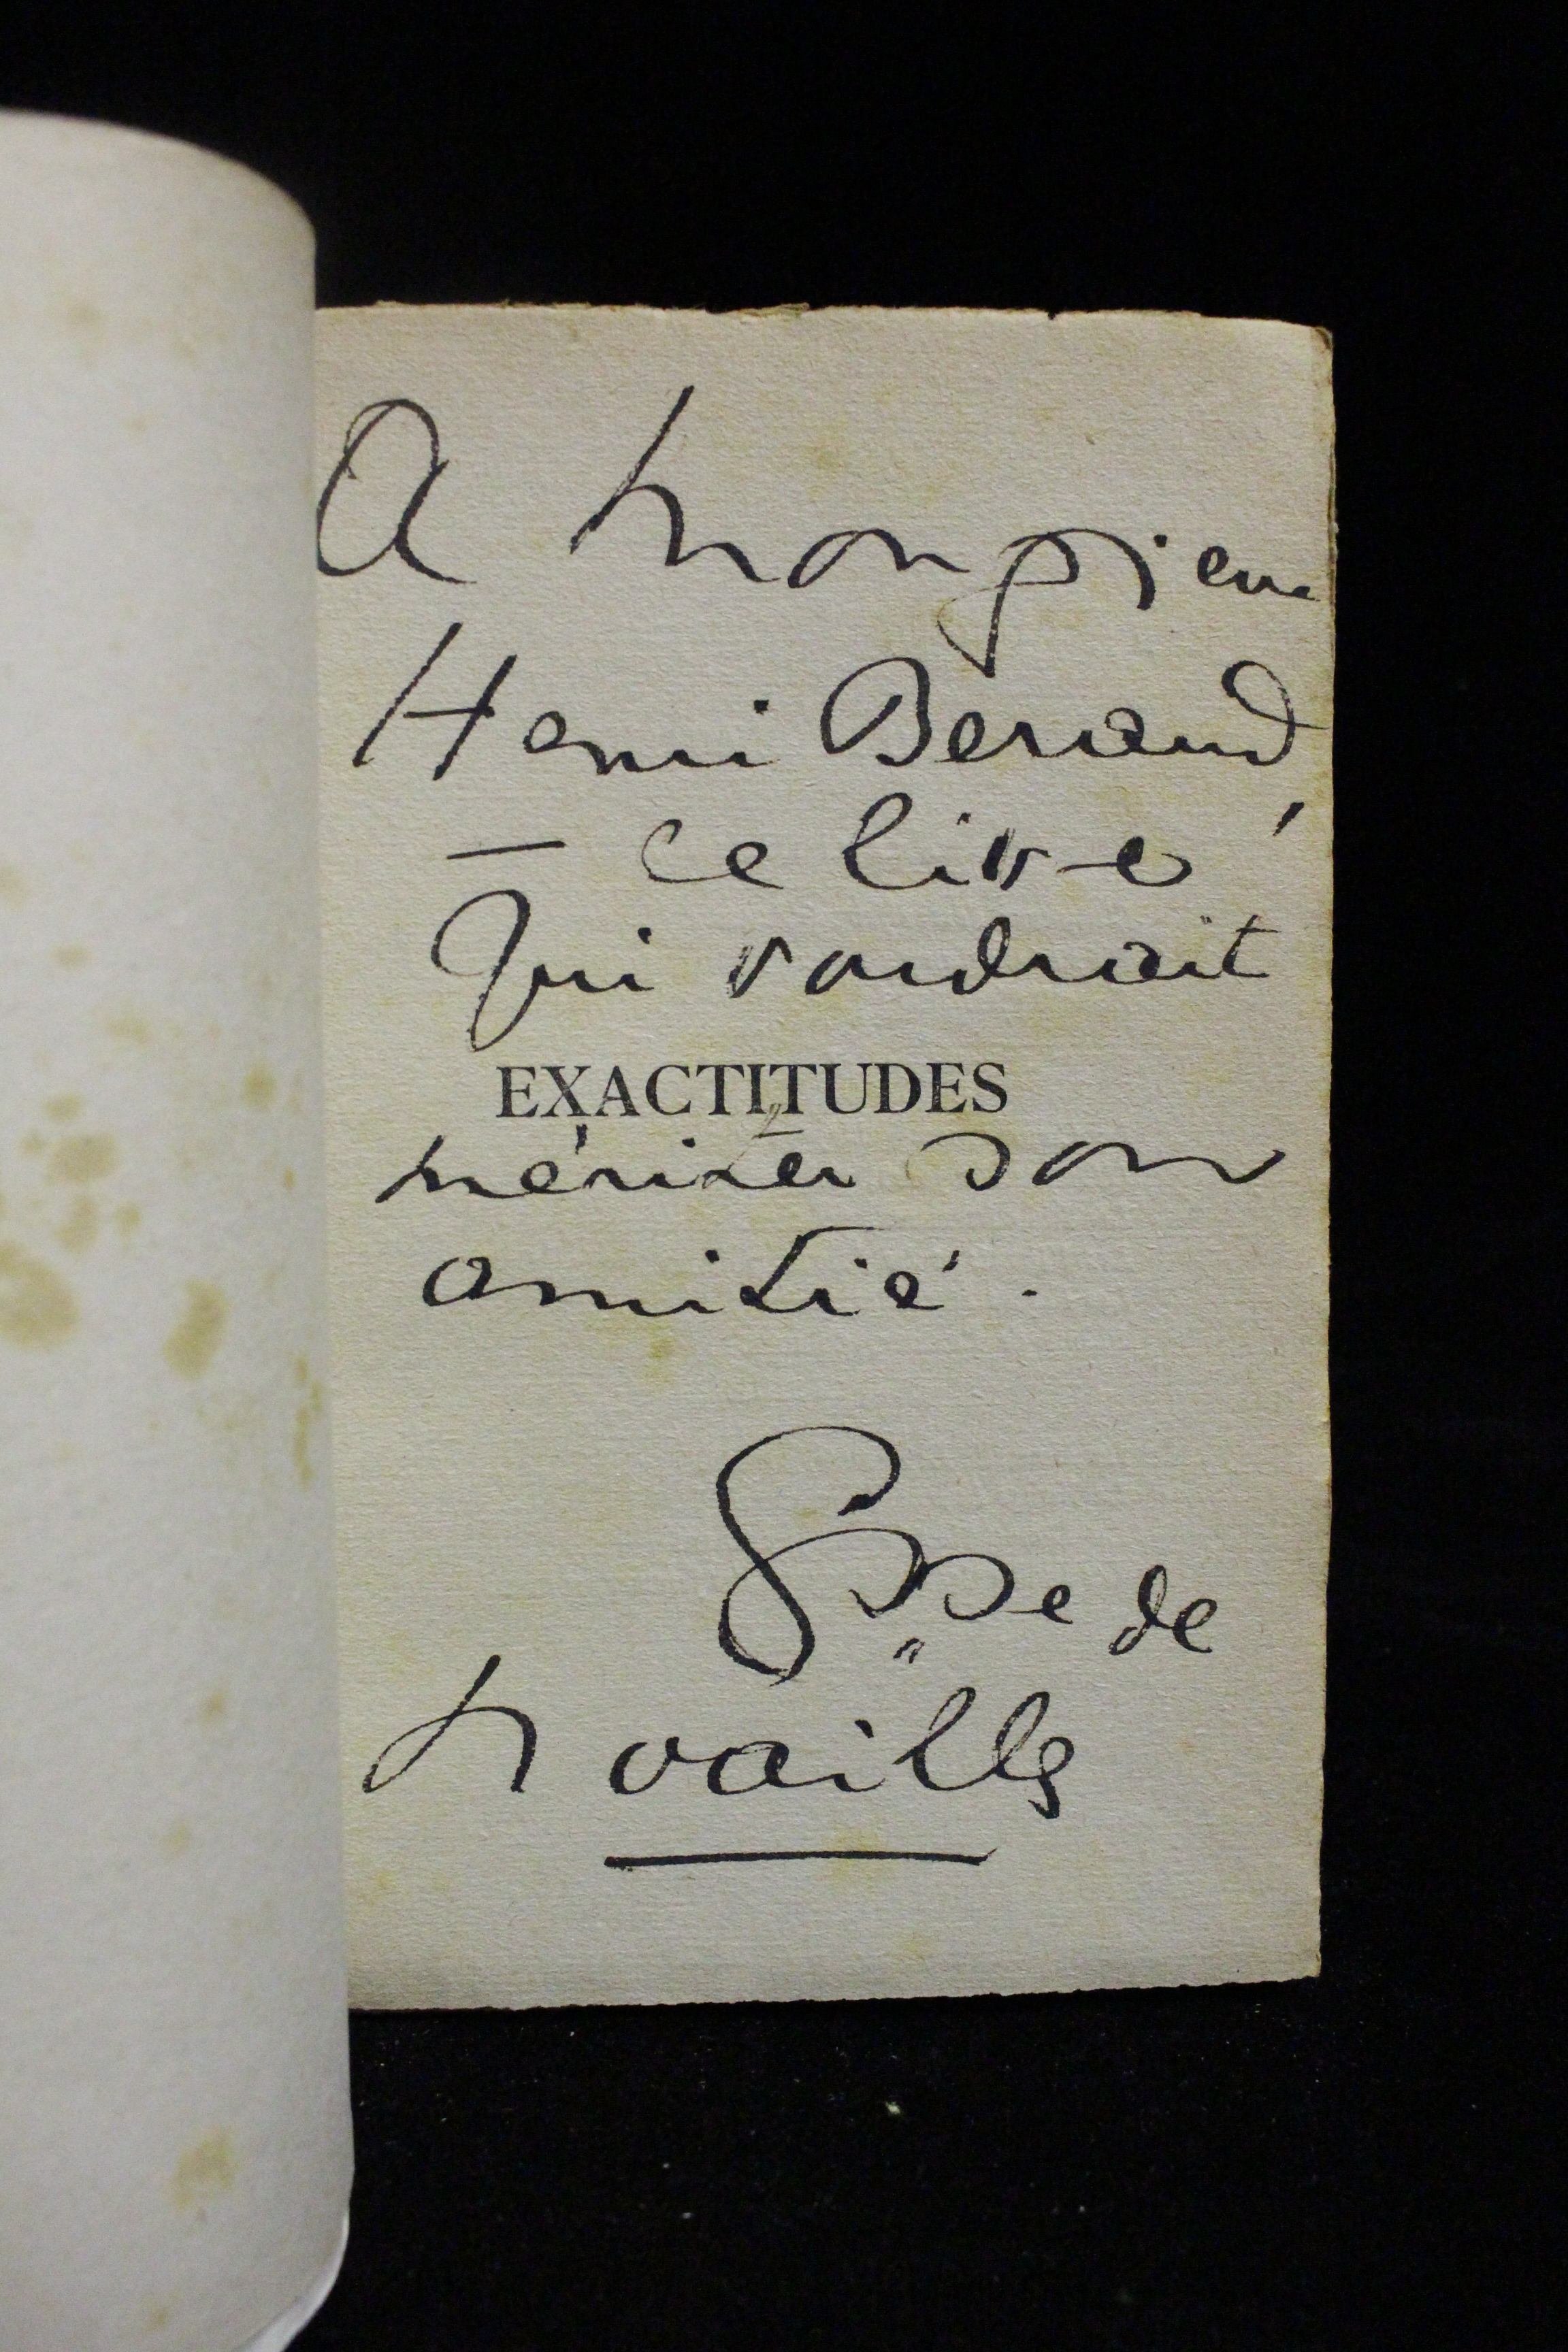 A Monsieur
Henri Beraud,
— ce livre
Qui voudrait
EXACTITUDES
mériter son
amitié.
Csse de
Noailles